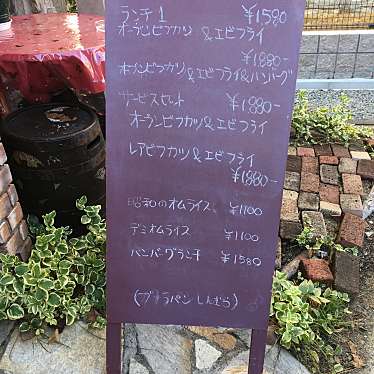 ランチ1 ¥1580
オーランビフカツ&エビフライ
¥1880-
オーランビフカツ&エビフライ&ハンバーグ
サービスセット ¥1880-
オーランビフカツ&エビフライ
レアビフカツ&エビフライ
¥1880-
昭和のオムライス ¥1100
デミオムライス ¥1100
ハンバーグランチ ¥1580